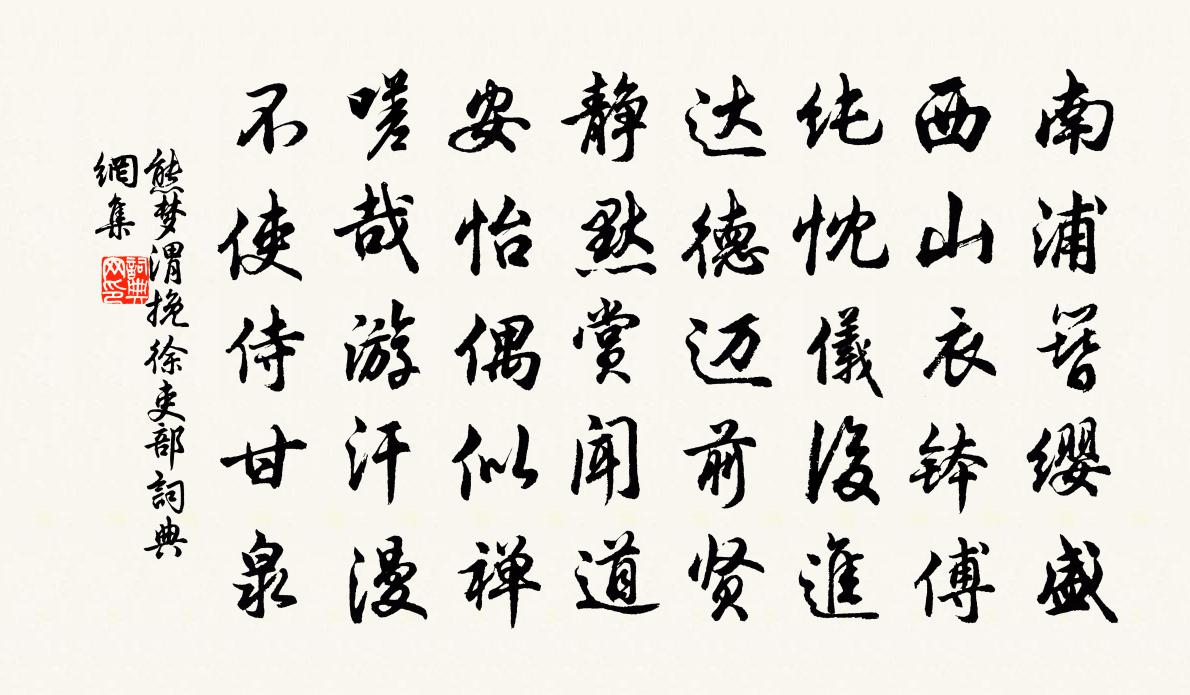 南浦簪缨盛
西山衣钵傅
纯忱儀後進
达德迈前贤
静黙赏闻道
安怡偶似禅
嗟哉游汗漫
不使侍甘泉
熊梦渭挽徐吏部詞典
網集
詞典
网印